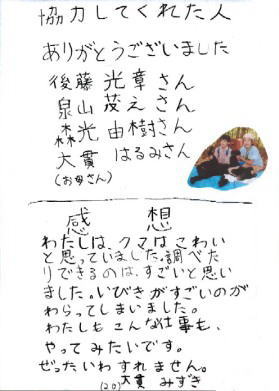 協力してくれた人
ありがとうございました
後藤 光章さん
泉山 茂之さん
森光 由樹さん
大貫 はるみさん
(お母さん)
感想
わたしは、クマはこわい
と思っていました。調べた
りできるのは、すごいと思い
ました。いびきがすごいのが
わらってしまいました。
わたしもこんな仕事も、
やってみたいです。
ぜったいわすれません。
(20) 大貫 みずき